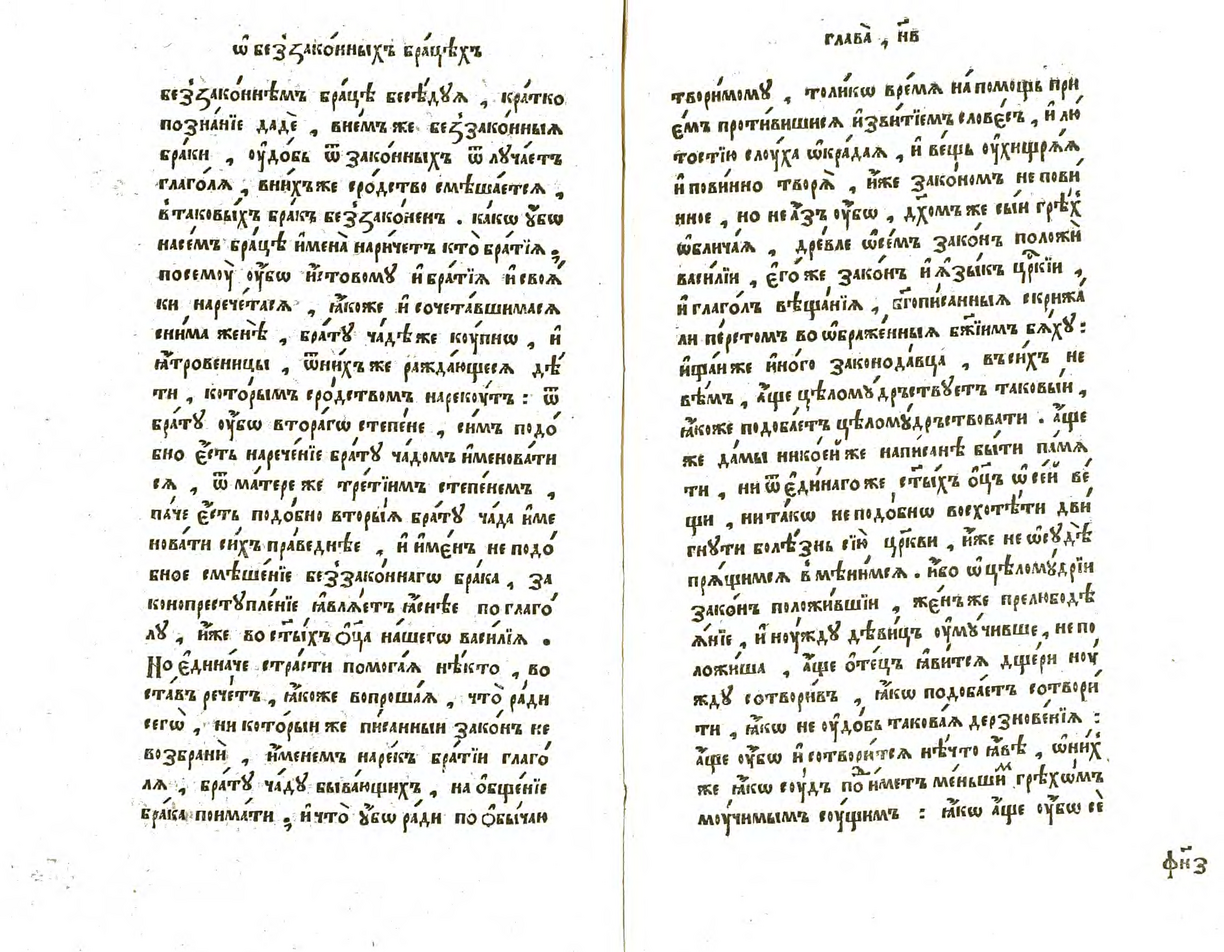 ѿ беззако́нныхъ бра́цѣхъ
беззако́ннѣмъ бра́цѣ бесѣ́дꙋѧ , кра́тко
позна́нїе дадѐ , вне́мъже беззако́нныѧ
бра́ки , ᲂу҆до́бь ѿзако́нныхъ ѿлꙋча́етъ
глаго́лѧ , вни́хъже сро́дство смѣша́етсѧ ,
втаковы́хъ бра́къ беззако́ненъ . ка́кѡ ᲂу҆́бѡ
насе́мъ бра́цѣ и҆мена̀ нарн́четъ кто̀ бра́тїѧ ;
посемꙋ̀ ᲂу҆́бѡ и҆́стовомꙋ и҆бра́тїѧ и҆своѧ́
ки нарече́тасѧ , ꙗ҆́коже и҆сочета́вшимасѧ
сни́ма женѣ̀ , бра́тꙋ ча́дѣже кꙋ́пнѡ , и҆
ꙗ҆́тровеницы , ѿни́хъже ражда́ющесѧ дѣ́
ти , кото́рымъ сро́дствомъ нарекꙋ́тъ : ѿ
бра́тꙋ ᲂу҆́бѡ втора́гѡ степе́не , си́мъ подо́
бно є҆́сть нарече́нїе бра́тꙋ ча́домъ и҆менова́ти
сѧ , ѿма́тереже тре́тїимъ степе́немъ ,
па́че є҆́сть подо́бно вторы́ѧ бра́тꙋ ча́да и҆ме
нова́ти си́хъ пра́веднѣе , и҆и҆ме́нъ не подо́
бное смѣше́нїе беззако́ннагѡ бра́ка , за
конопрестꙋпле́нїе ꙗ҆влѧ́етъ ꙗ҆́снѣе по глаго́
лꙋ , и҆́же во ст҃ы́хъ ѻ҆ц҃а на́шегѡ васи́лїѧ .
Но є҆дина́че стра́сти помога́ѧ нѣ́кто , во
ста́въ рече́тъ , ꙗ҆́коже вопроша́ѧ , что̀ ра́ди
сегѡ̀ , ни кото́рыи же пи́санныи зако́нъ не
возбранѝ , и҆́менемъ наре́къ бра́тїи глаго́
лѧ , бра́тꙋ ча́дꙋ быва́ющихъ , на ѻ҆бще́нїе
бра́ка поима́ти ; и҆что̀ ᲂу҆́бѡ ра́ди по ѻ҆бы́чаю
глава̀ , н҃в
твори́момꙋ , толи́кѡ вре́мѧ на́помощь при
є҆́мъ проти́вишисѧ и҆зви́тїемъ слове́съ , и҆лю́
тостїю слꙋ́ха ѡ҆кра́даѧ , и҆ ве́щь ᲂу҆хищрѧ́ѧ
и҆пови́нно творѧ̀ , и҆́же зако́номъ не пови́
нное , но не а҆́зъ ᲂу҆́бѡ , дх҃омъже сы́и грѣ́хъ
ѡ҆блича́ѧ , дре́вле ѡ҆се́мъ зако́нъ положѝ
васи́лїи , є҆го́же зако́нъ и҆ꙗ҆зы́къ цр҃кїи ,
и҆глаго́лъ вѣща́нїѧ , бг҃описанныѧ скрижа́
ли пе́рстомъ во ѡ҆браже́нныѧ бж҃їимъ бѧ́хꙋ :
и҆щанже и҆но́го законода́вца , въси́хъ не
вѣ́мъ , а҆́ще цѣломꙋ́дрьствꙋетъ таковы́и ,
ꙗ҆́коже подоба́етъ цѣломꙋ́дрьствовати . а҆́ще
же да́мы нико́ейже напи́санѣ бы́ти па́мѧ
ти , ни ѿє҆ди́нагоже ст҃ы́хъ ѻ҆ц҃ъ ѡ҆се́й ве́
щи , нита́кѡ неподо́бнѡ восхотѣ́ти дви́
гнꙋти болѣ́знь сїю̀ цр҃кви , и҆́же не ѡ҆сꙋдѣ̀
прѧ́щимсѧ вмѣни́мсѧ . и҆́бо ѡ҆цѣломꙋ́дрїи
зако́нъ положи́вшїи , же́нъже прелюбодѣ
ѧ́нїе , и҆нꙋ́ждꙋ дѣви́цъ ᲂу҆мꙋ́чивше , не по
ложи́ша , а҆́ще ѻ҆те́цъ ꙗ҆ви́тсѧ дще́ри нꙋ́
ждꙋ сотвори́въ , ꙗ҆́кѡ подоба́етъ сотвори́
ти , ꙗ҆́кѡ не ᲂу҆до́бь такова́ѧ дерзнове́нїѧ :
а҆́ще ᲂу҆́бѡ и҆сотвори́тсѧ нѣ́что ꙗ҆́вѣ , ѡ҆ни́х
же ꙗ҆́кѡ сꙋ́дъ по́иметъ ме́ньшим грѣхѡ́мъ
мꙋ́чимымъ сꙋ́щимъ : ꙗ҆́кѡ а҆́ще ᲂу҆́бѡ сѐ
фн҃з